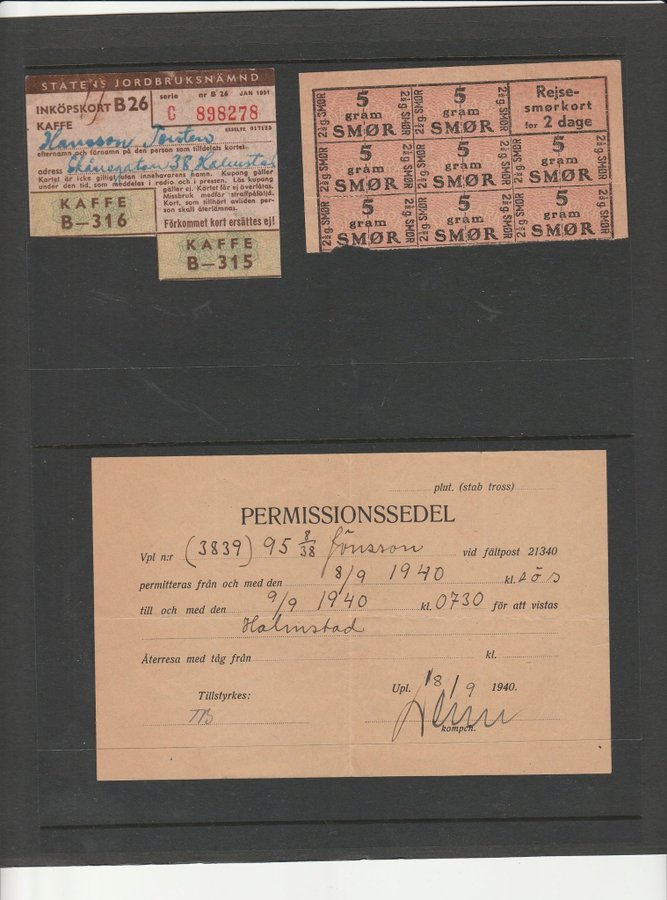 STATENS JORDBRUKSNÄMND
INKÖPSKORT B 26
KAFFE
serie nr B 26 JAN 1951
C 898278
Hansson Torsten
efternamn och förnamn på den person som tilldelats kortet.
adress Skånegatan 38 Halmstad
Kortet är icke giltigt utan innehavarens namn. Kupong gäller
under den tid, som meddelas i radio och i pressen. Lös kupong
gäller ej. Kortet får ej överlåtas.
Missbruk medför straffpåföljd.
Kort, som tillhört avliden person
skall återlämnas.
Förkommet kort ersättes ej!
KAFFE
B—316
KAFFE
B—315
2½ g. SMØR 5 gram SMØR 2½ g. SMØR 5 gram SMØR 2½ g. SMØR Rejse-
smørkort
for 2 dage
2½ g. SMØR 5 gram SMØR 2½ g. SMØR 5 gram SMØR 2½ g. SMØR 5 gram SMØR 2½ g. SMØR
2½ g. SMØR 5 gram SMØR 2½ g. SMØR 5 gram SMØR 2½ g. SMØR 5 gram SMØR 2½ g. SMØR
plut. (stab tross)
PERMISSIONSSEDEL
Vpl n:r (3839) 95 8/38 Jönsson vid fältpost 21340
permitteras från och med den 8/9 1940 kl.
till och med den 9/9 1940 kl. 0730 för att vistas
Halmstad
Återresa med tåg från kl.
Tillstyrkes: Upl. 8/9 1940.
kompch.